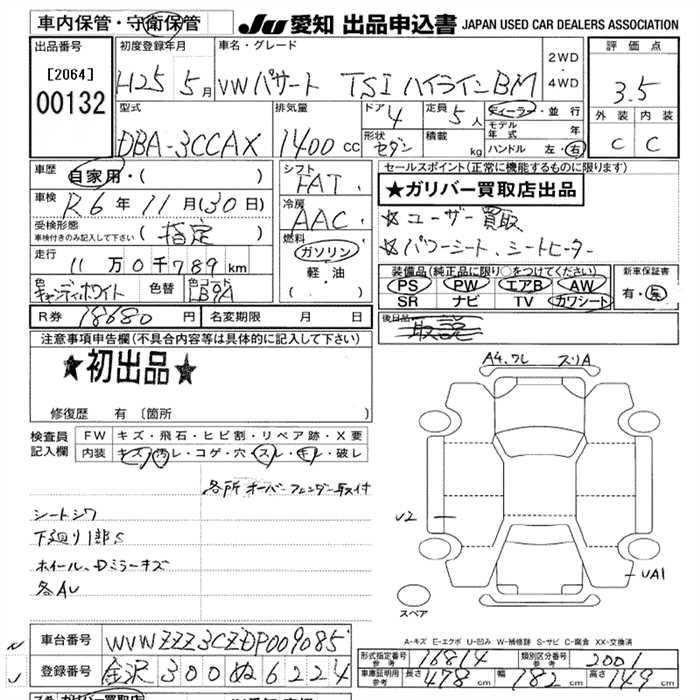 車内保管・守衛保管
JU 愛知 出品申込書 JAPAN USED CAR DEALERS ASSOCIATION
出品番号
[2064]
00132
初度登録年月
H25 5月
車名・グレード
VW パサート TSI ハイラインBM
2WD
・
4WD
評価点
3.5
外装 内装
C C
型式
DBA-3CCAX
排気量
1400cc
ドア
4
形状
セダン
定員
5人
積載
kg
ディーラー・並行
モデル年式 年
ハンドル 左・右
車歴
自家用・( )
車検
R6年11月(30日)
受検形態
車検付きのみ記入して下さい
(指定)
走行
11万0千789km
色
キャンディホワイト
色替
色コード
LB9A
シフト
FAT
冷房
AAC
燃料
ガソリン
・
軽・油
( )
R券 18680円
名変期限 月 日
セールスポイント(正常に機能するものに限ります)
★ガリバー買取店出品
☆ユーザー買取
☆パワーシート、シートヒーター
装備品(純正品に限り○をつけてください)
PS PW エアB AW
SR ナビ TV カワシート
新車保証書
有・無
後日品
取説
注意事項申告欄(不具合内容等は具体的に記入して下さい)
★初出品★
修復歴 有 〔箇所
検査員
記入欄
FW キズ・飛石・ヒビ割・リペア跡・X要
内装 キズ・汚レ・コゲ・穴・スレ・キレ・破レ
各所オーバーフェンダー
シートシワ
下廻り1部S
ホイール、Dミラーキズ
各AU
A4,ワレ スリA
U2
UA1
スペア
A-キズ E-エクボ U-凹み W-補修跡 S-サビ C-腐食 XX-交換済
車台番号 WVWZZZ3CZDP009085
登録番号 金沢300ぬ6224
形式指定番号
参考
16814
類別区分番号
参考
2001
車庫証明用
参考
長さ 478cm 幅 182cm 高さ 149cm
ガリバー買取店